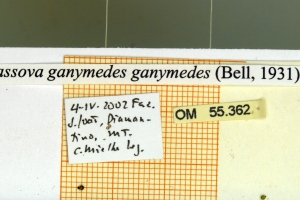 assova ganymedes ganymedes (Bell, 1931)
4-IV-2002 Faz.
Diaman-
tino, MT.
C. Mielke leg.
OM 55.362